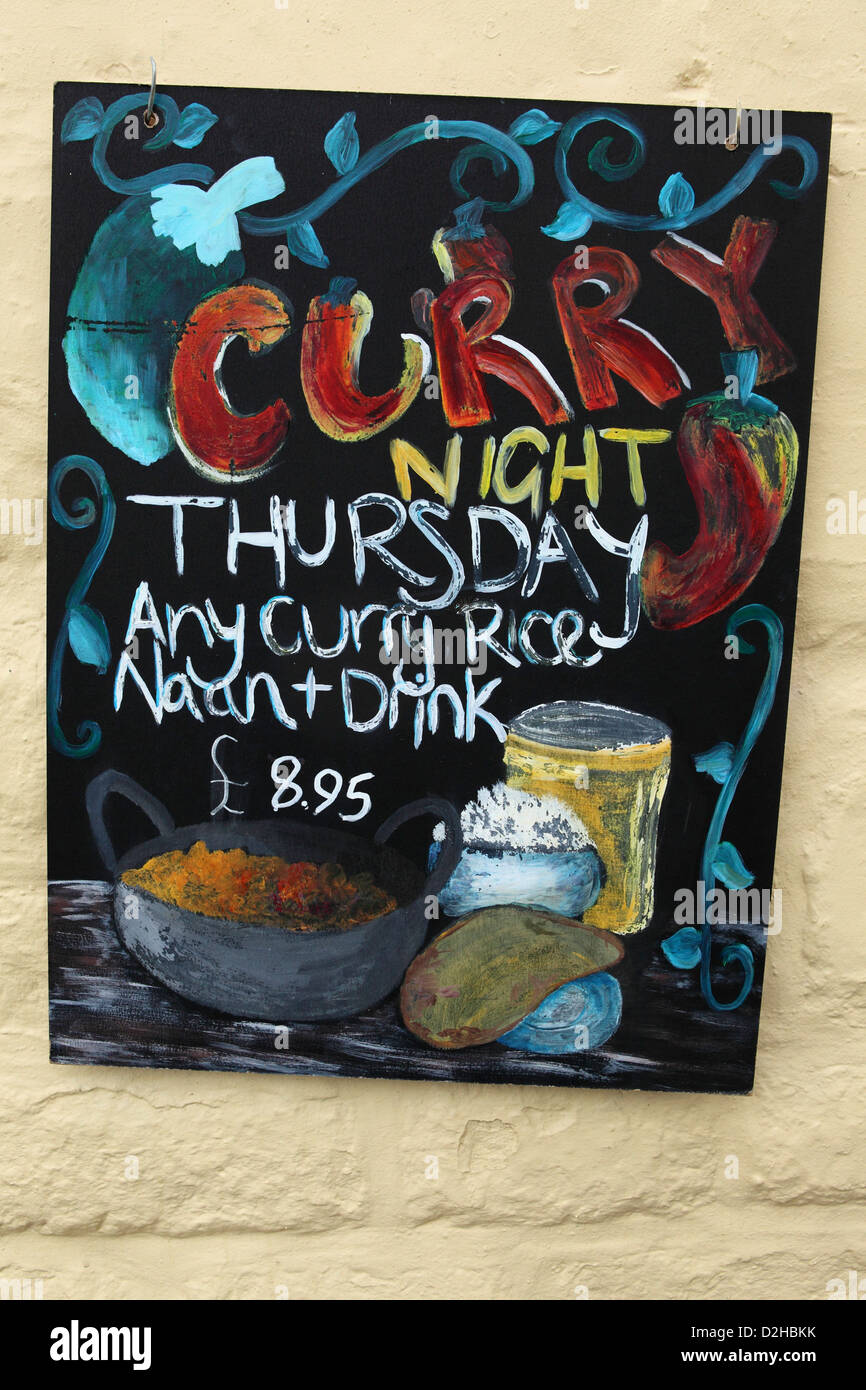 CURRY
NIGHT
THURSDAY
Any Curry Rice
Naan + Drink
£ 8.95
alamy
Image ID: D2HBKK
www.alamy.com